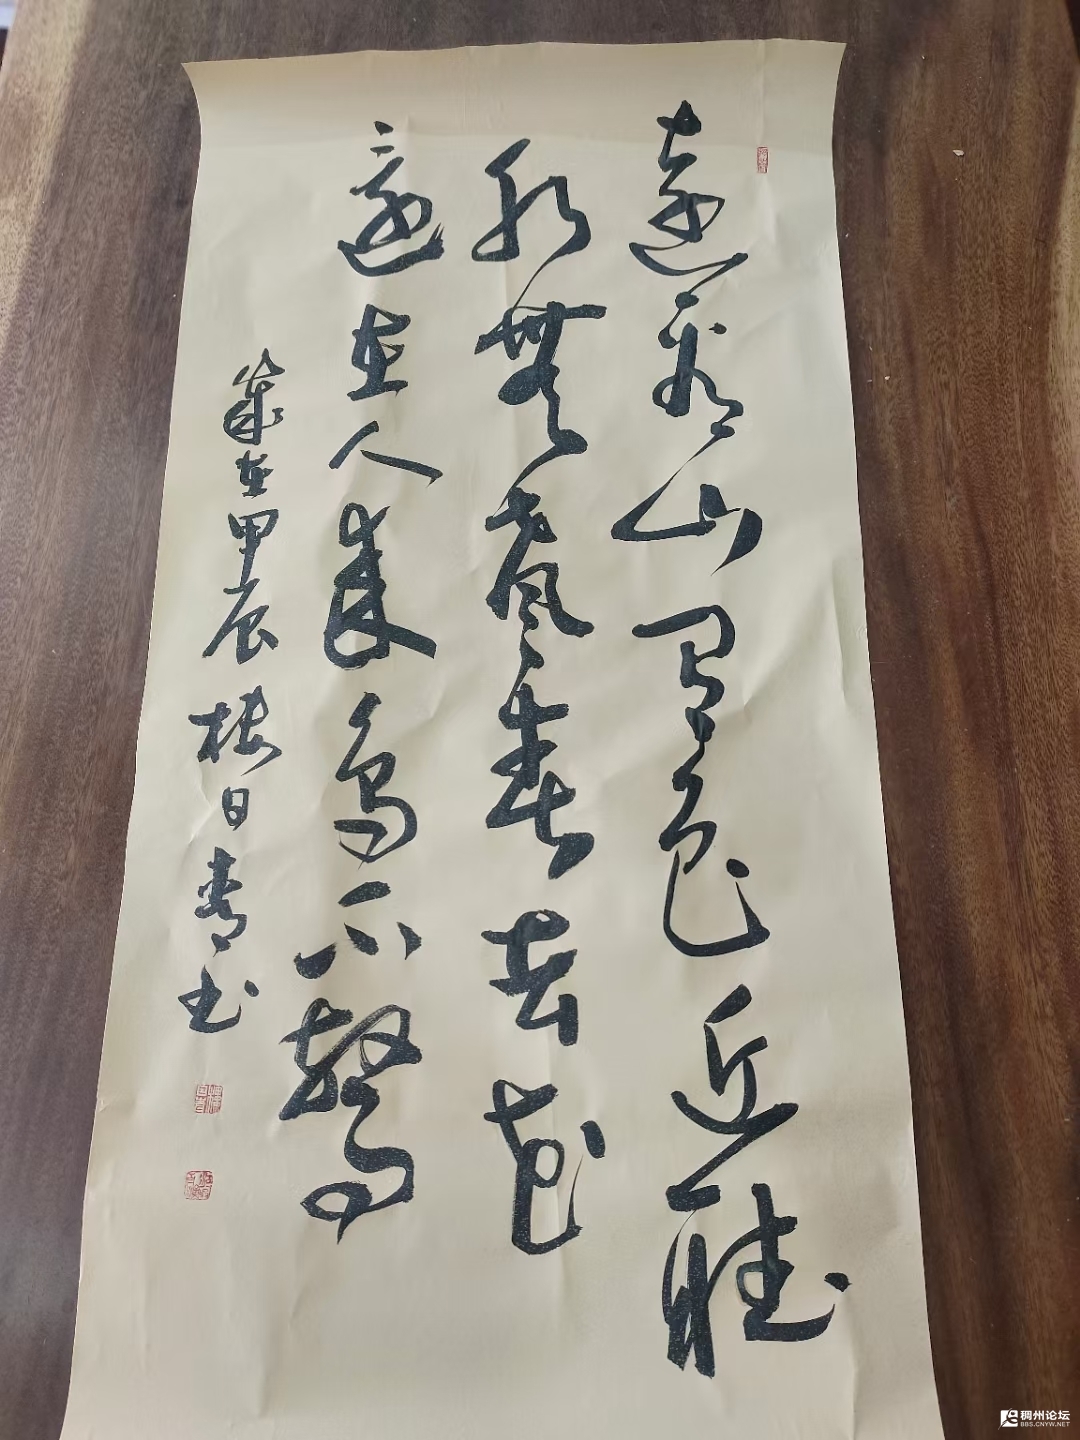 遠看山有色近聽
水無聲春去花
還在人來鳥不驚
歲在甲辰楼日青书
稠州论坛
BBS.CNYW.NET